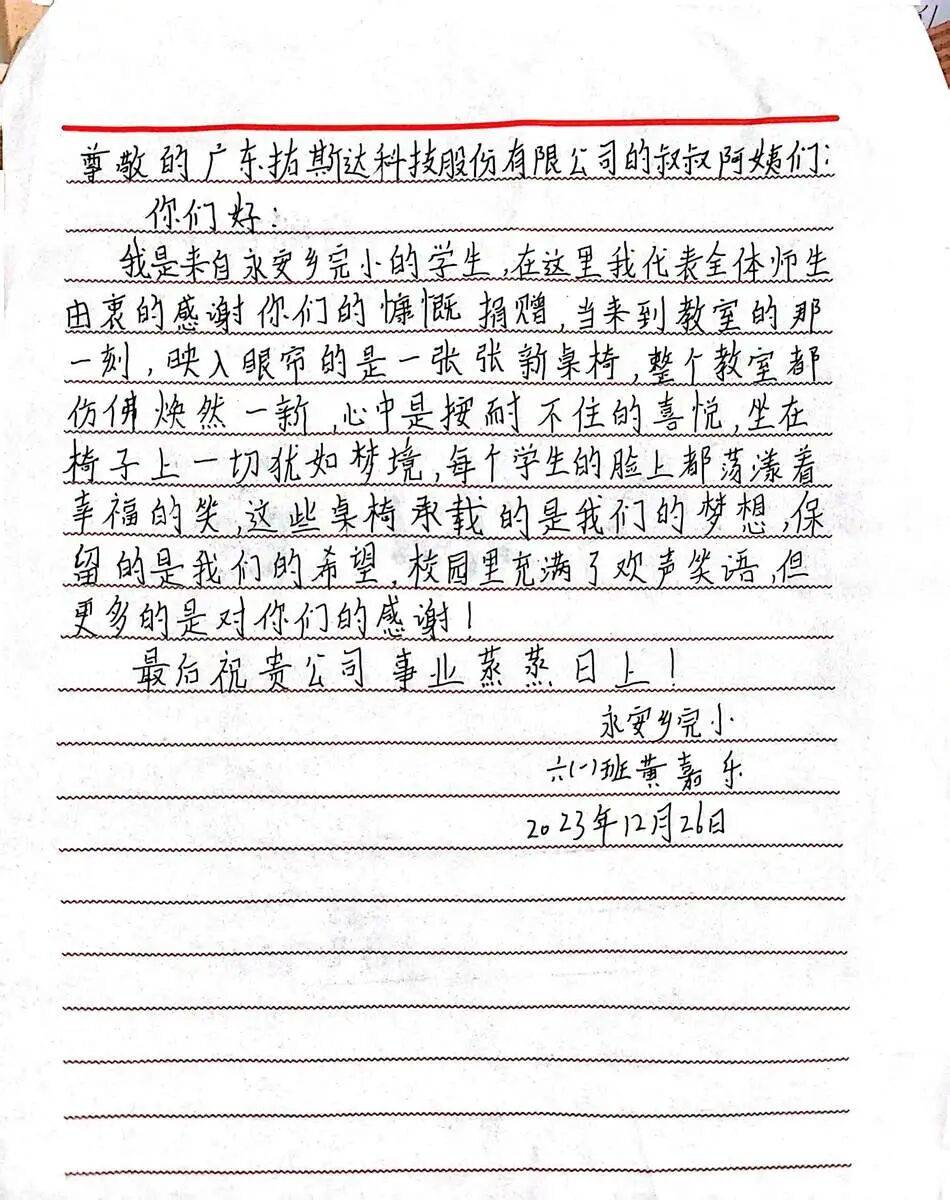 尊敬的广东拓斯达科技股份有限公司的叔叔阿姨们:
你们好:
我是来自永安乡完小的学生,在这里我代表全体师生
由衷的感谢你们的慷慨捐赠,当来到教室的那
一刻,映入眼帘的是一张张新桌椅,整个教室都
仿佛焕然一新,心中是按耐不住的喜悦,坐在
椅子上一切犹如梦境,每个学生的脸上都荡漾着
幸福的笑,这些桌椅承载的是我们的梦想,保
留的是我们的希望,校园里充满了欢声笑语,但
更多的是对你们的感谢!
最后祝贵公司事业蒸蒸日上!
永安乡完小
六(一)班黄嘉乐
2023年12月26日